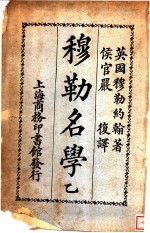 英國穆勒約翰著
侯官嚴復譯
穆勒名學乙
上海商務印書館發行